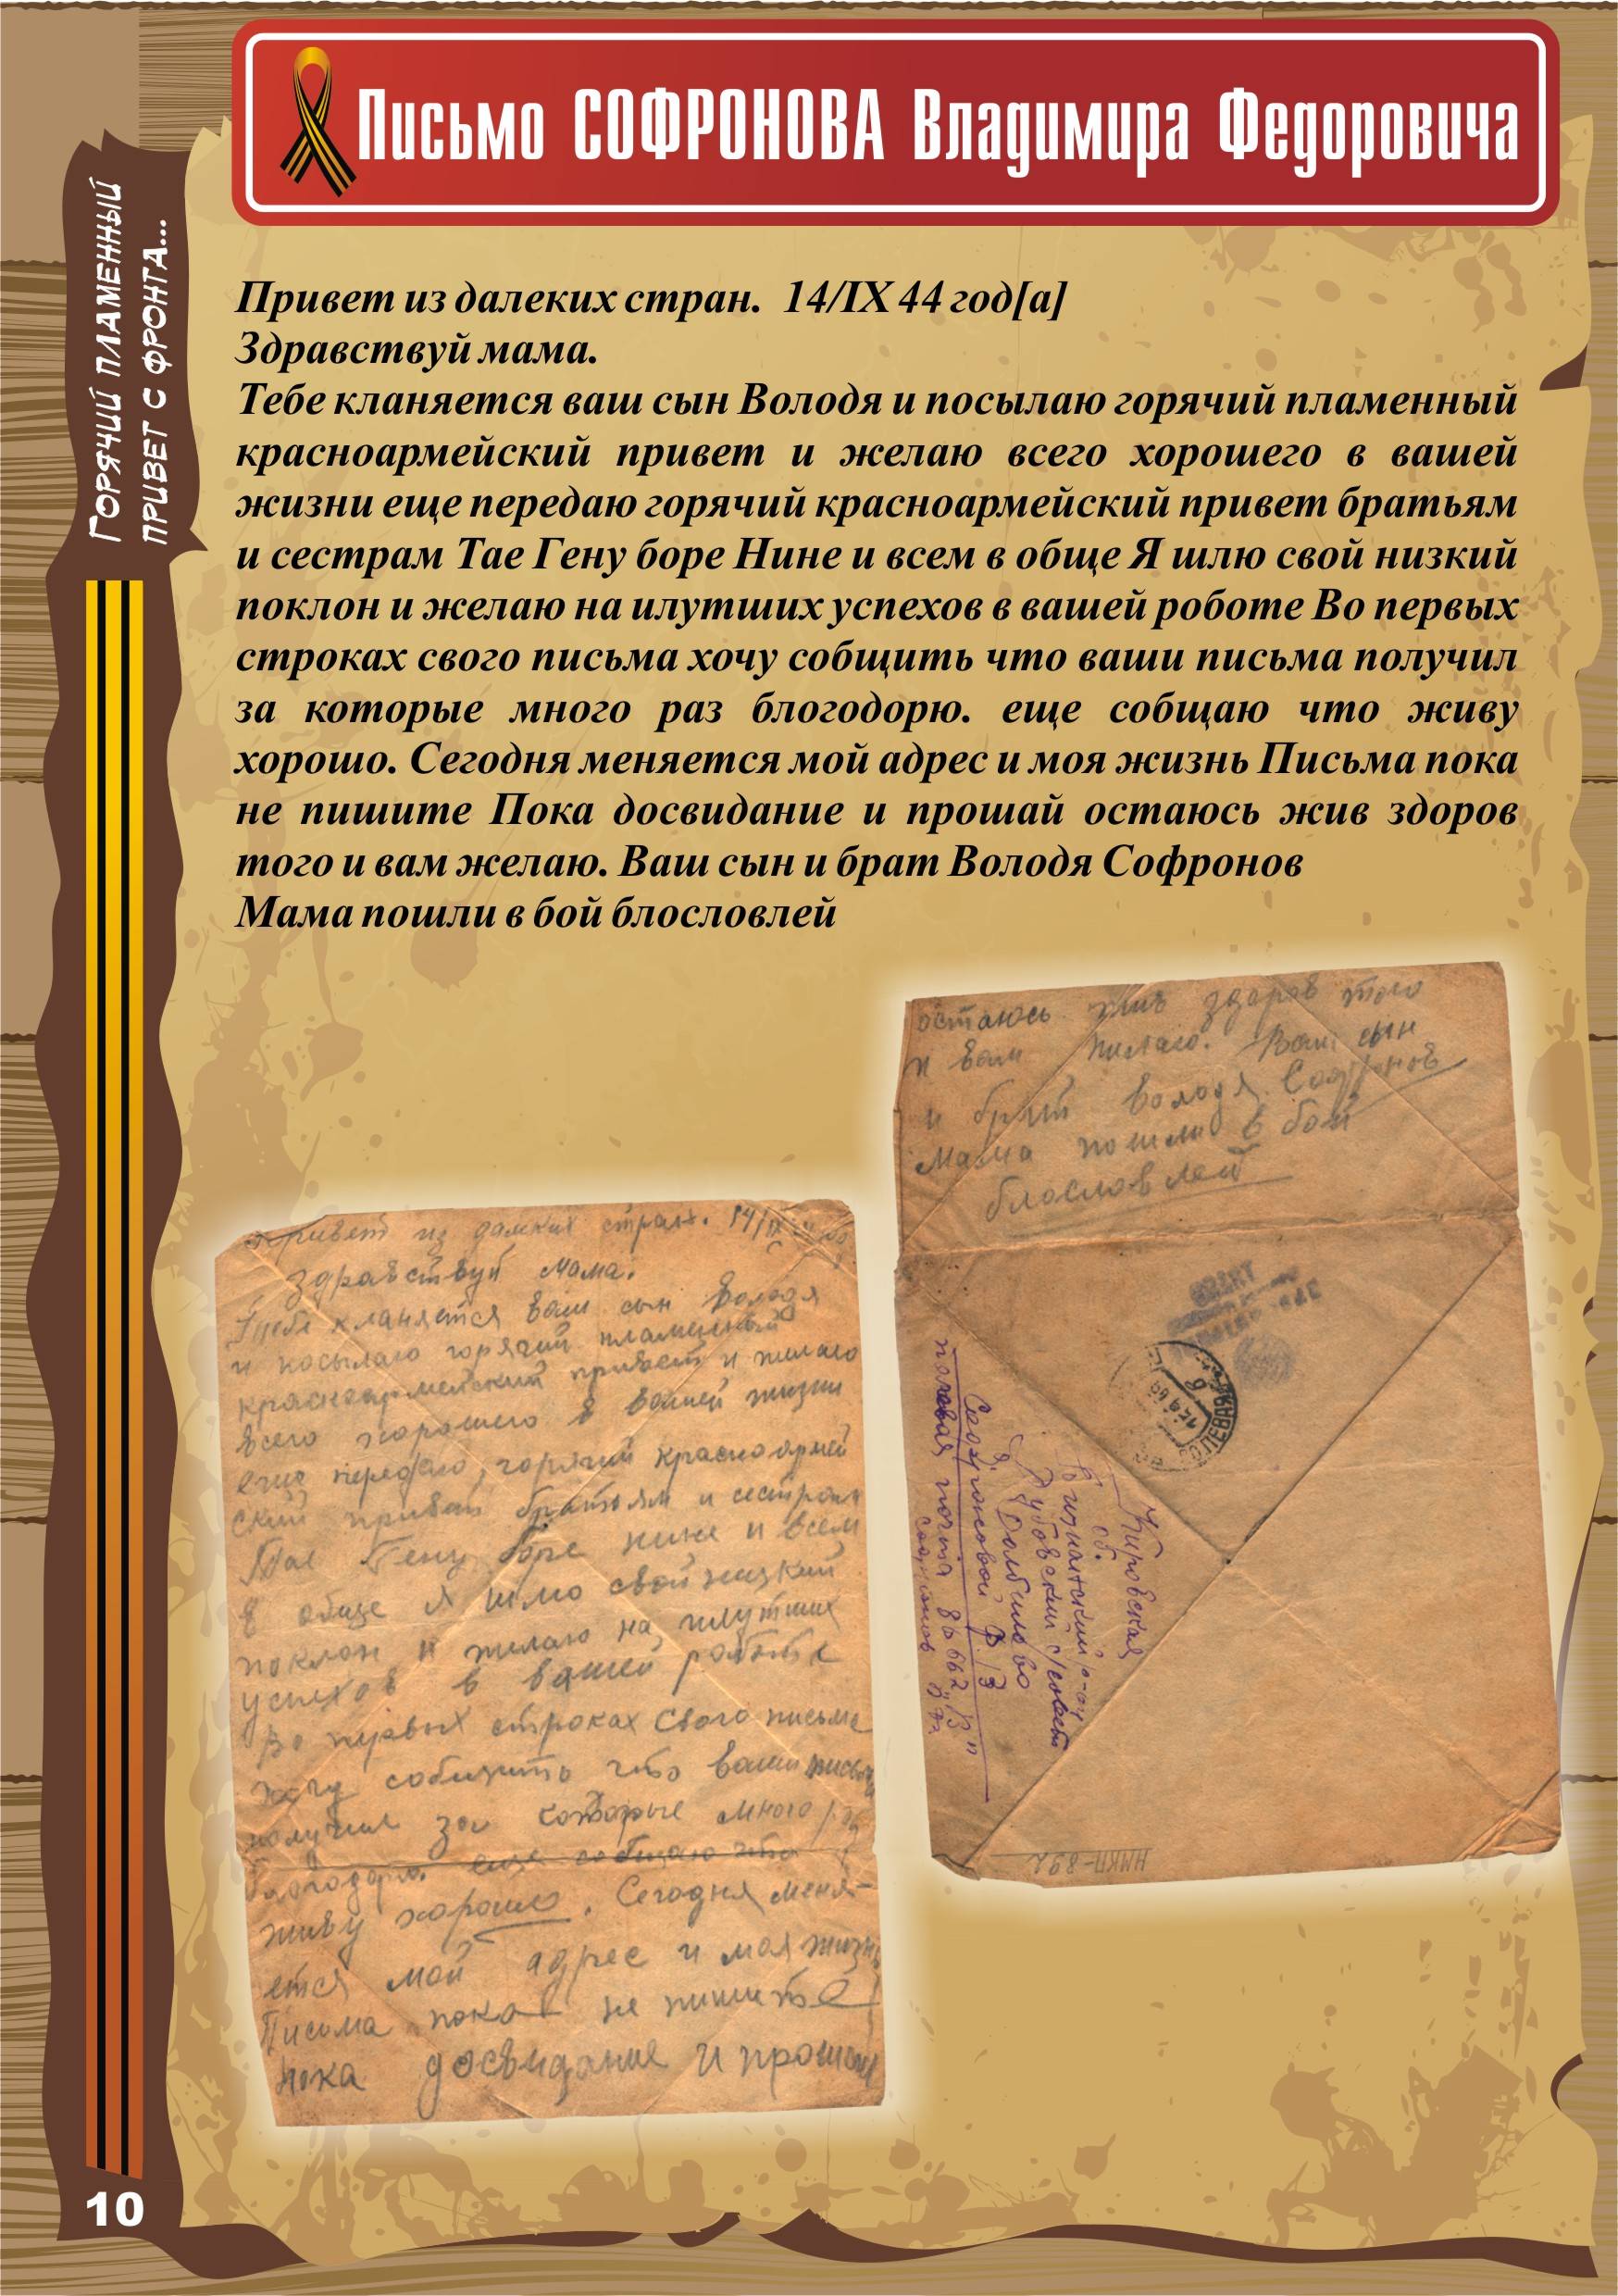 Письмо СОФРОНОВА Владимира Федоровича
Горячий пламенный
привет с фронта...
Привет из далеких стран. 14/IX 44 год[а]
Здравствуй мама.
Тебе кланяется ваш сын Володя и посылаю горячий пламенный
красноармейский привет и желаю всего хорошего в вашей
жизни еще передаю горячий красноармейский привет братьям
и сестрам Тае Гену боре Нине и всем в обще Я шлю свой низкий
поклон и желаю на илутших успехов в вашей роботе Во первых
строках свого письма хочу собщить что ваши письма получил
за которые много раз блогодорю. еще собщаю что живу
хорошо. Сегодня меняется мой адрес и моя жизнь Письма пока
не пишите Пока досвидание и прошай остаюсь жив здоров
того и вам желаю. Ваш сын и брат Володя Софронов
Мама пошли в бой блословлей
остаюсь жив здоров того
и вам желаю. Ваш сын
и брат Володя Софронов
Мама пошли в бой
блословлей
Привет из далеких стран. 14/IX 44
Здравствуй мама.
Тебе кланяется ваш сын Володя
и посылаю горячий пламенный
красноармейский привет и желаю
всего хорошего в вашей жизни
еще передаю горячий красноармей
ский привет братьям и сестрам
Тае Гену боре нине и всем
в обще Я шлю свой низкий
поклон и желаю на илутших
успехов в вашей роботе
Во первых строках свого письма
хочу собщить что ваши письма
получил за которые много раз
блогодорю. еще собщаю что
живу хорошо. Сегодня меня-
ется мой адрес и моя жизнь
Письма пока не пишите
пока досвидание и прошай
Кировская
об.
с/совет
Софроновой
полевая почта
Софронов
ПОЛЕВАЯ
НМКП-892
10